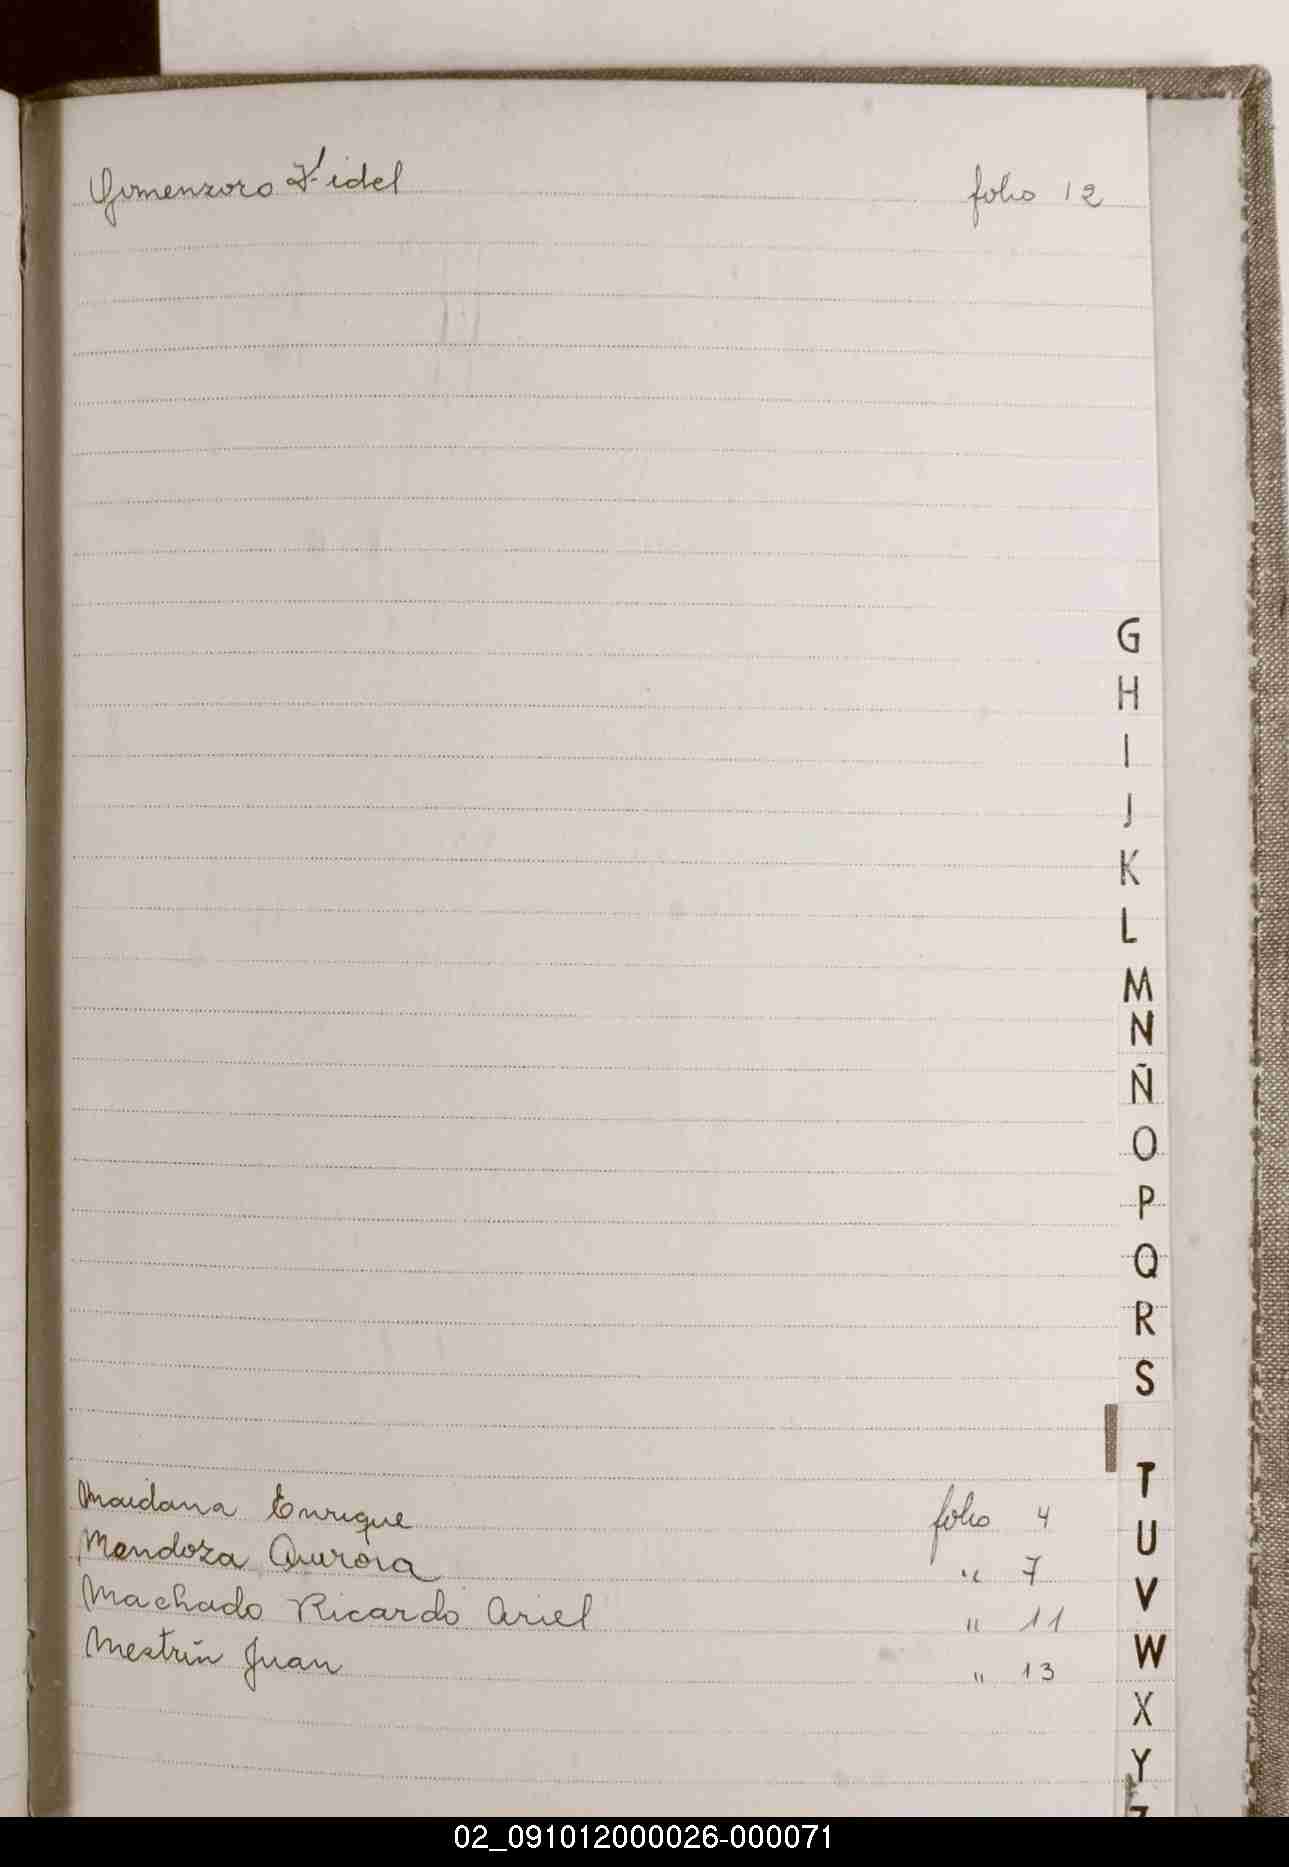 Gomenzoro Fidel folio 12
G
H
I
J
K
L
M
N
Ñ
O
P
Q
R
S
T
U
V
W
X
Y
Z
Maidana Enrique folio 4
Mendoza Aurora " 7
Machado Ricardo Ariel " 11
Mestrin Juan " 13
02_091012000026-000071